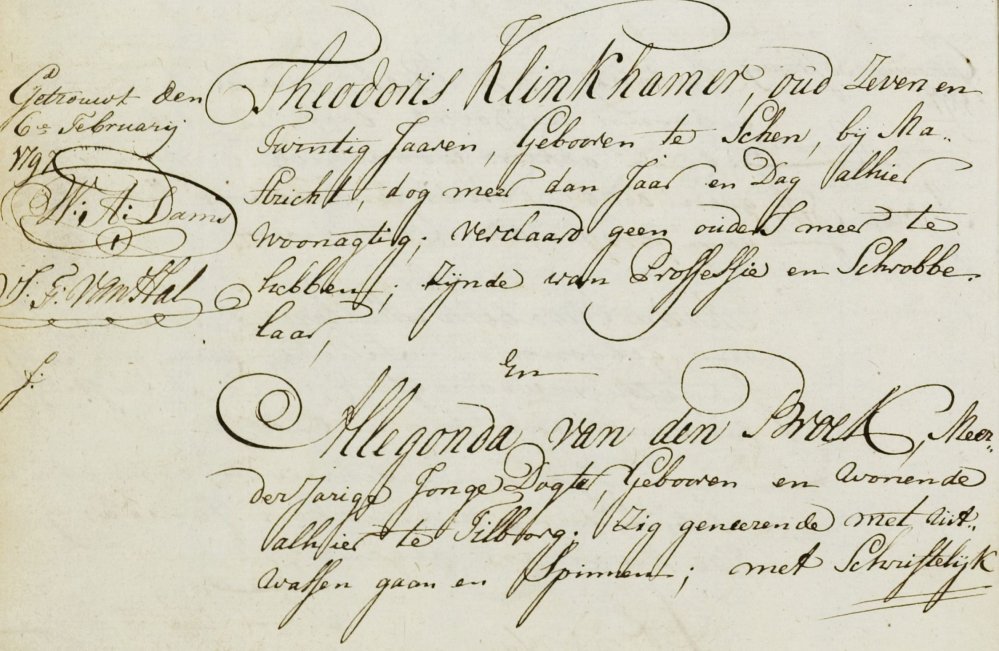 Getrouwt den
6e February
179
W: A: Dams
J. F: van Hal
f:
Theodoris Klinkhamer, oud Zeven en
Twintig Jaaren, Gebooren te Schen, bij Ma-
stricht, dog meer dan Jaar en Dag alhier
woonagtig; verclaard geen ouders meer te
hebben; zijnde van Proffessie en Schrobbe-
laar,
En
Allegonda van den Broek, Meer-
der Jarige Jonge Dogter, Gebooren en wonende
alhier te Tilborg. zig geneerende met uit-
wassen gaan en Spinnen; met Schriftelijk